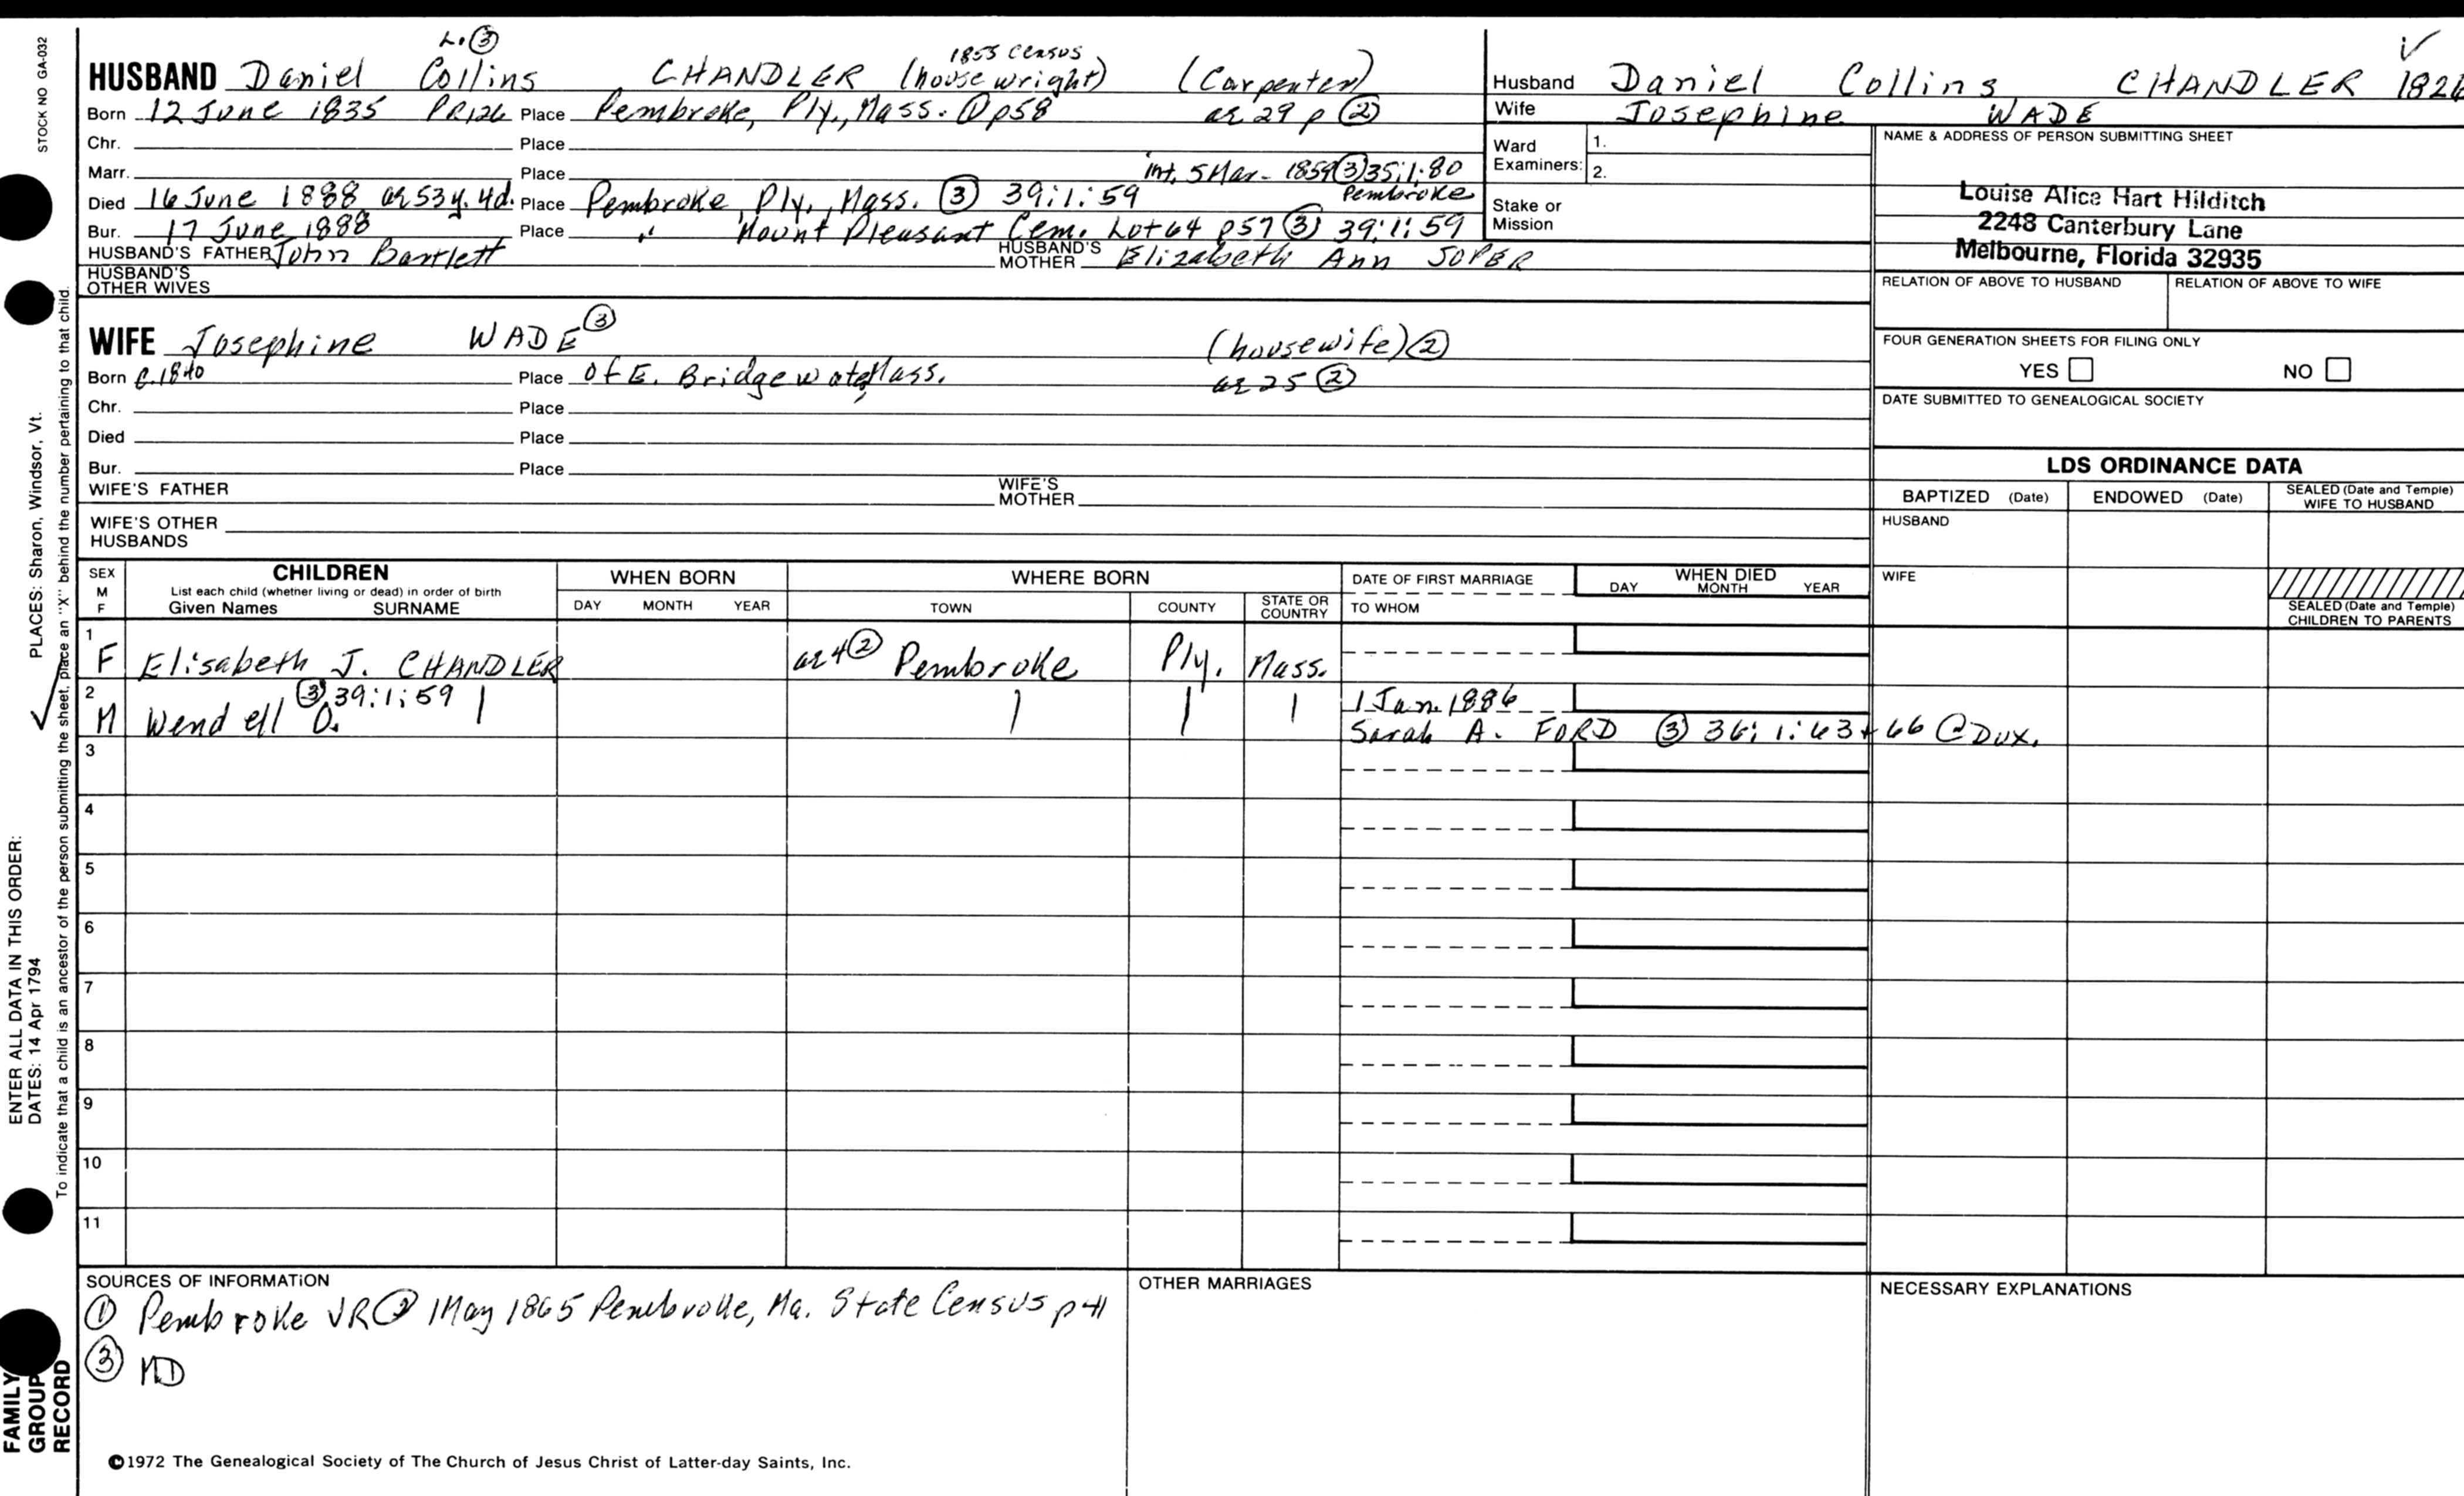 STOCK NO GA-032
PLACES: Sharon, Windsor, Vt.
ENTER ALL DATA IN THIS ORDER:
DATES: 14 Apr 1794
To indicate that a child is an ancestor of the person submitting the sheet, place an "X" behind the number pertaining to that child.
FAMILY GROUP RECORD
L. ③
1855 census
HUSBAND Daniel Collins CHANDLER (housewright) (Carpenter)
Born 12 June 1835 PR126 Place Pembroke, Ply., Mass. ① p58 ae 29 p ②
Chr. Place
int. 5 Mar- 1859 ③ 35:1:80
Marr. Place Pembroke
Died 16 June 1888 ae 53y. 4d. Place Pembroke, Ply., Mass. ③ 39:1:59
Bur. 17 June 1888 Place " Mount Pleasant Cem. Lot 64 p57 ③ 39:1:59
HUSBAND'S FATHER John Bartlett HUSBAND'S MOTHER Elizabeth Ann SOPER
HUSBAND'S OTHER WIVES
WIFE Josephine WADE ③ (housewife) ②
Born c.1840 Place Of E. Bridgewater, Mass. ae 25 ②
Chr. Place
Died Place
Bur. Place
WIFE'S FATHER WIFE'S MOTHER
WIFE'S OTHER HUSBANDS
Husband Daniel Collins CHANDLER
Wife Josephine WADE
Ward Examiners: 1.
2.
Stake or Mission
NAME & ADDRESS OF PERSON SUBMITTING SHEET
Louise Alice Hart Hilditch
2248 Canterbury Lane
Melbourne, Florida 32935
RELATION OF ABOVE TO HUSBAND RELATION OF ABOVE TO WIFE
FOUR GENERATION SHEETS FOR FILING ONLY
YES NO
DATE SUBMITTED TO GENEALOGICAL SOCIETY
LDS ORDINANCE DATA
BAPTIZED (Date) ENDOWED (Date) SEALED (Date and Temple) WIFE TO HUSBAND
HUSBAND
WIFE
SEALED (Date and Temple) CHILDREN TO PARENTS
SEX M F
CHILDREN
List each child (whether living or dead) in order of birth
Given Names SURNAME
WHEN BORN
DAY MONTH YEAR
WHERE BORN
TOWN COUNTY STATE OR COUNTRY
DATE OF FIRST MARRIAGE
TO WHOM
WHEN DIED
DAY MONTH YEAR
1 F Elisabeth J. CHANDLER ae 4 ② Pembroke Ply. Mass.
2 M Wendell O. ③ 39:1:59 | | | | 1 Jan. 1886
Sarah A. FORD ③ 36:1:63+66 @ Dux.
3
4
5
6
7
8
9
10
11
SOURCES OF INFORMATION
① Pembroke VR ② 1 May 1865 Pembroke, Ma. State Census p 41
③ MD
OTHER MARRIAGES
NECESSARY EXPLANATIONS
©1972 The Genealogical Society of The Church of Jesus Christ of Latter-day Saints, Inc.